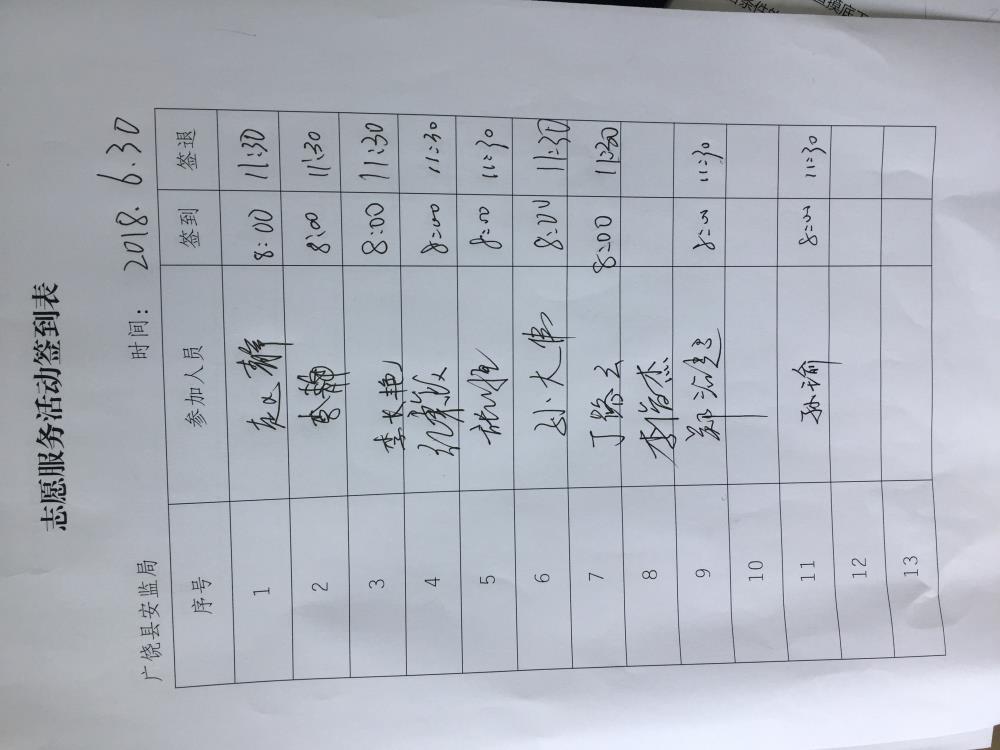 志愿服务活动签到表
广饶县安监局 时间: 2018.6.30
序号 参加人员 签到 签退
1 8:00 11:30
2 8:00 11:30
3 李长艳 8:00 11:30
4 8:00 11:30
5 8:00 11:30
6 孙大伟 8:00 11:30
7 丁路云 8:00 11:30
8
9 8:00 11:30
10
11 孙瑜 8:00 11:30
12
13